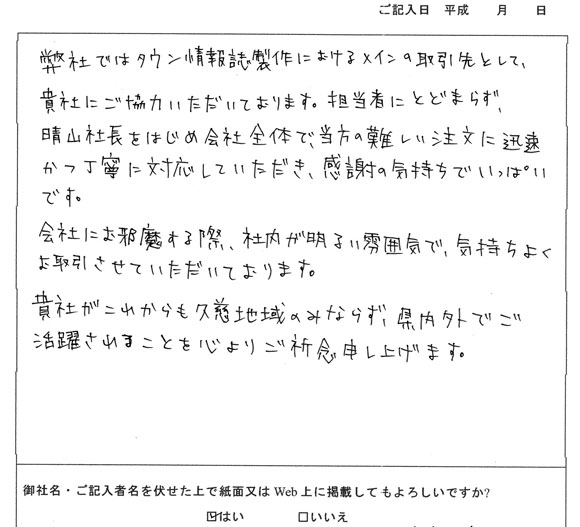 ご記入日　平成　　月　　日
弊社ではタウン情報誌製作におけるメインの取引先として、
貴社にご協力いただいております。担当者にとどまらず、
晴山社長をはじめ会社全体で、当方の難しい注文に迅速
かつ丁寧に対応していただき、感謝の気持ちでいっぱい
です。
会社にお邪魔する際、社内が明るい雰囲気で、気持ちよく
お取引させていただいております。
貴社がこれからも久慈地域のみならず、県内外でご
活躍されることを心よりご祈念申し上げます。
御社名・ご記入者名を伏せた上で紙面又は Web 上に掲載してもよろしいですか?
☑はい　　□いいえ